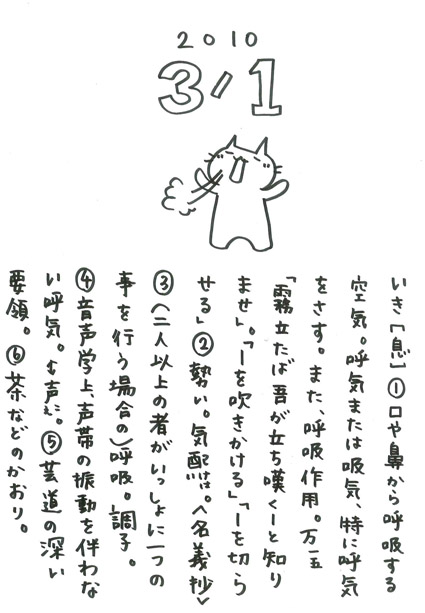 2010
3/1
いき［息］①口や鼻から呼吸する
空気。呼気または吸気、特に呼気
をさす。また、呼吸作用。万一五
「霧立たば吾が立ち嘆く―と知り
ませ」。「―を吹きかける」「―を切ら
せる」②勢い。気配は。〈名義抄〉
③（二人以上の者がいっしょに一つの
事を行う場合の）呼吸。調子。
④音声学上、声帯の振動を伴わな
い呼気。↔声こえ。⑤芸道の深い
要領。⑥茶などのかおり。